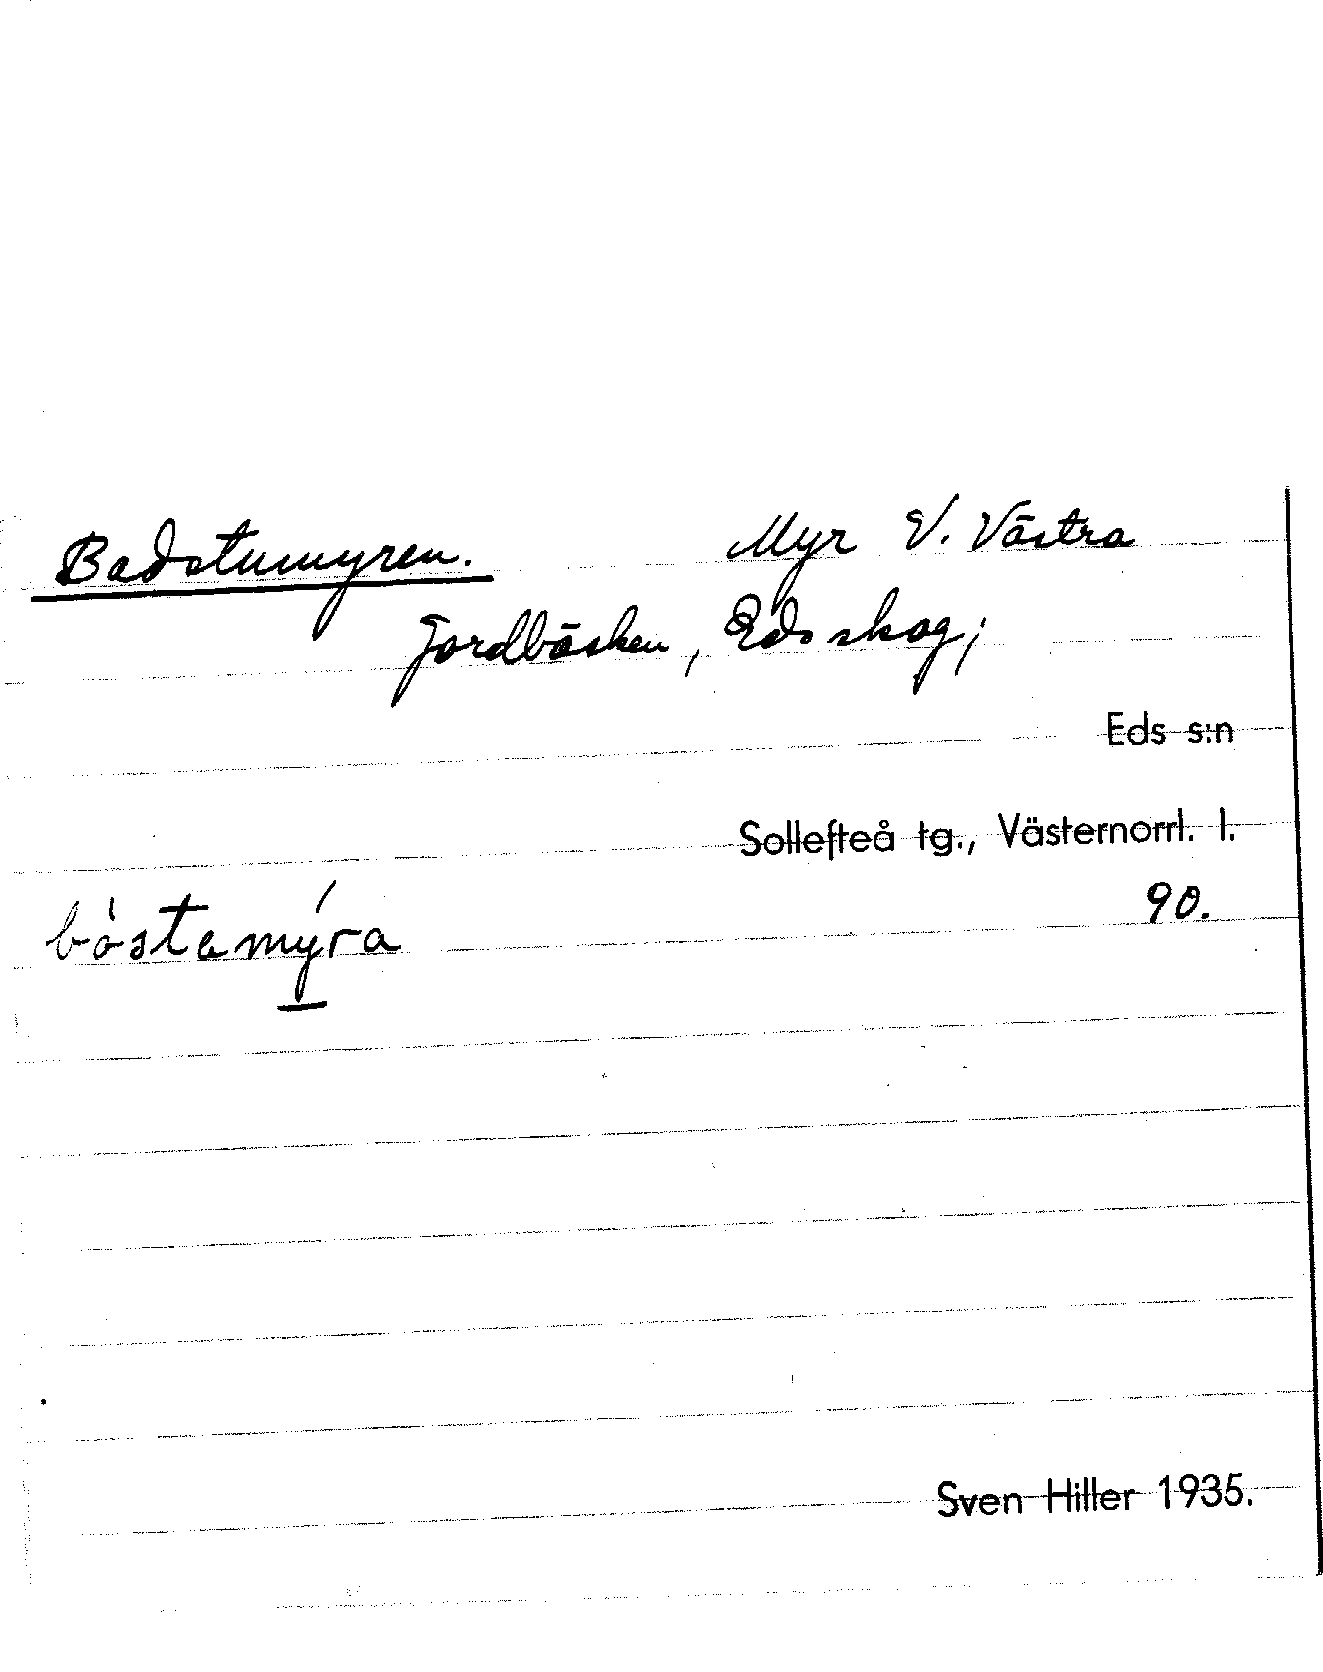 Badstumyren. Myr V. Västra
Jordbäcken, Eds skog;
Eds s:n
Sollefteå tg., Västernorrl. l.
90.
bástamýra
Sven Hiller 1935.